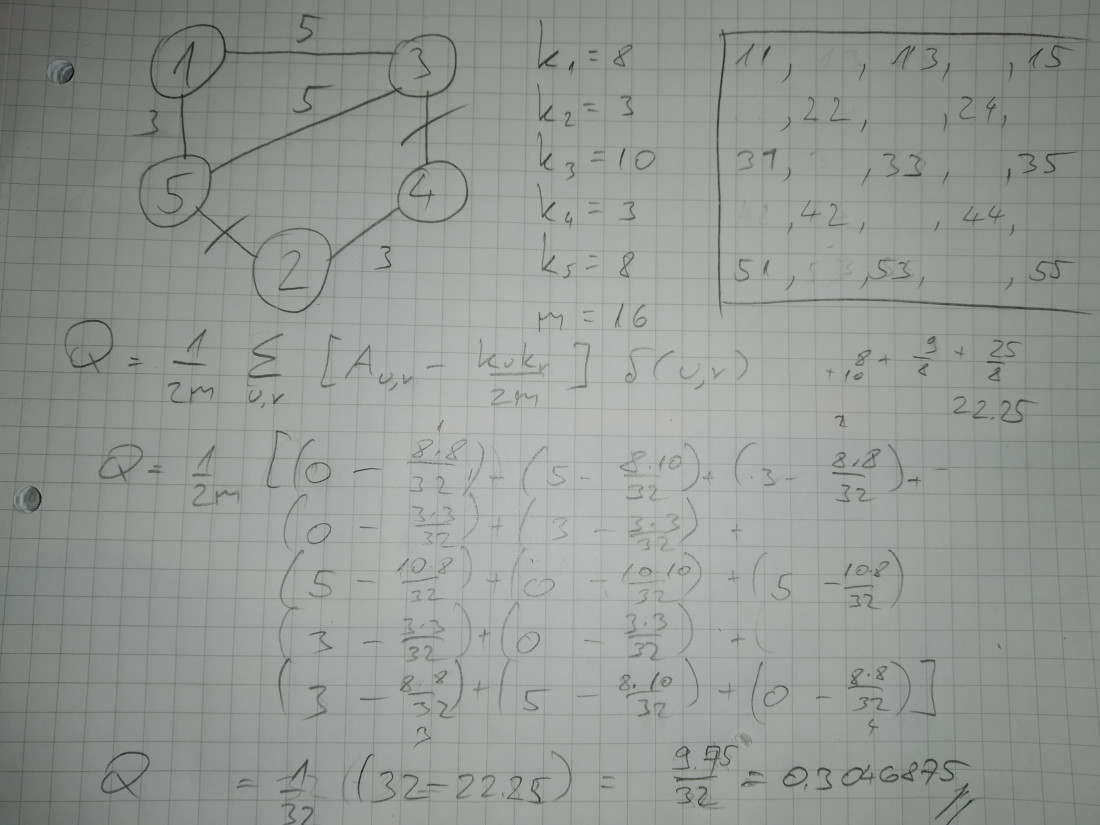 1 5 3
5
3
5 4
2 3
k₁ = 8
k₂ = 3
k₃ = 10
k₄ = 3
k₅ = 8
m = 16
11, , 13, , 15
, 22, , 24,
31, , 33, , 35
, 42, , 44,
51, , 53, , 55
Q = 1/2m Σ_{u,v} [A_{u,v} - k_u k_v/2m] δ(u,v)
+ 9/8 + 25/8
22.25
Q = 1/2m [(0 - 8.8/32) + (5 - 8.10/32) + (3 - 8.8/32) +
(0 - 3.3/32) + (3 - 3.3/32) +
(5 - 10.8/32) + (0 - 10.10/32) + (5 - 10.8/32)
(3 - 3.3/32) + (0 - 3.3/32) +
(3 - 8.8/32) + (5 - 8.10/32) + (0 - 8.8/32)]
3 4
Q = 1/32 (32 - 22.25) = 9.75/32 = 0.3046875